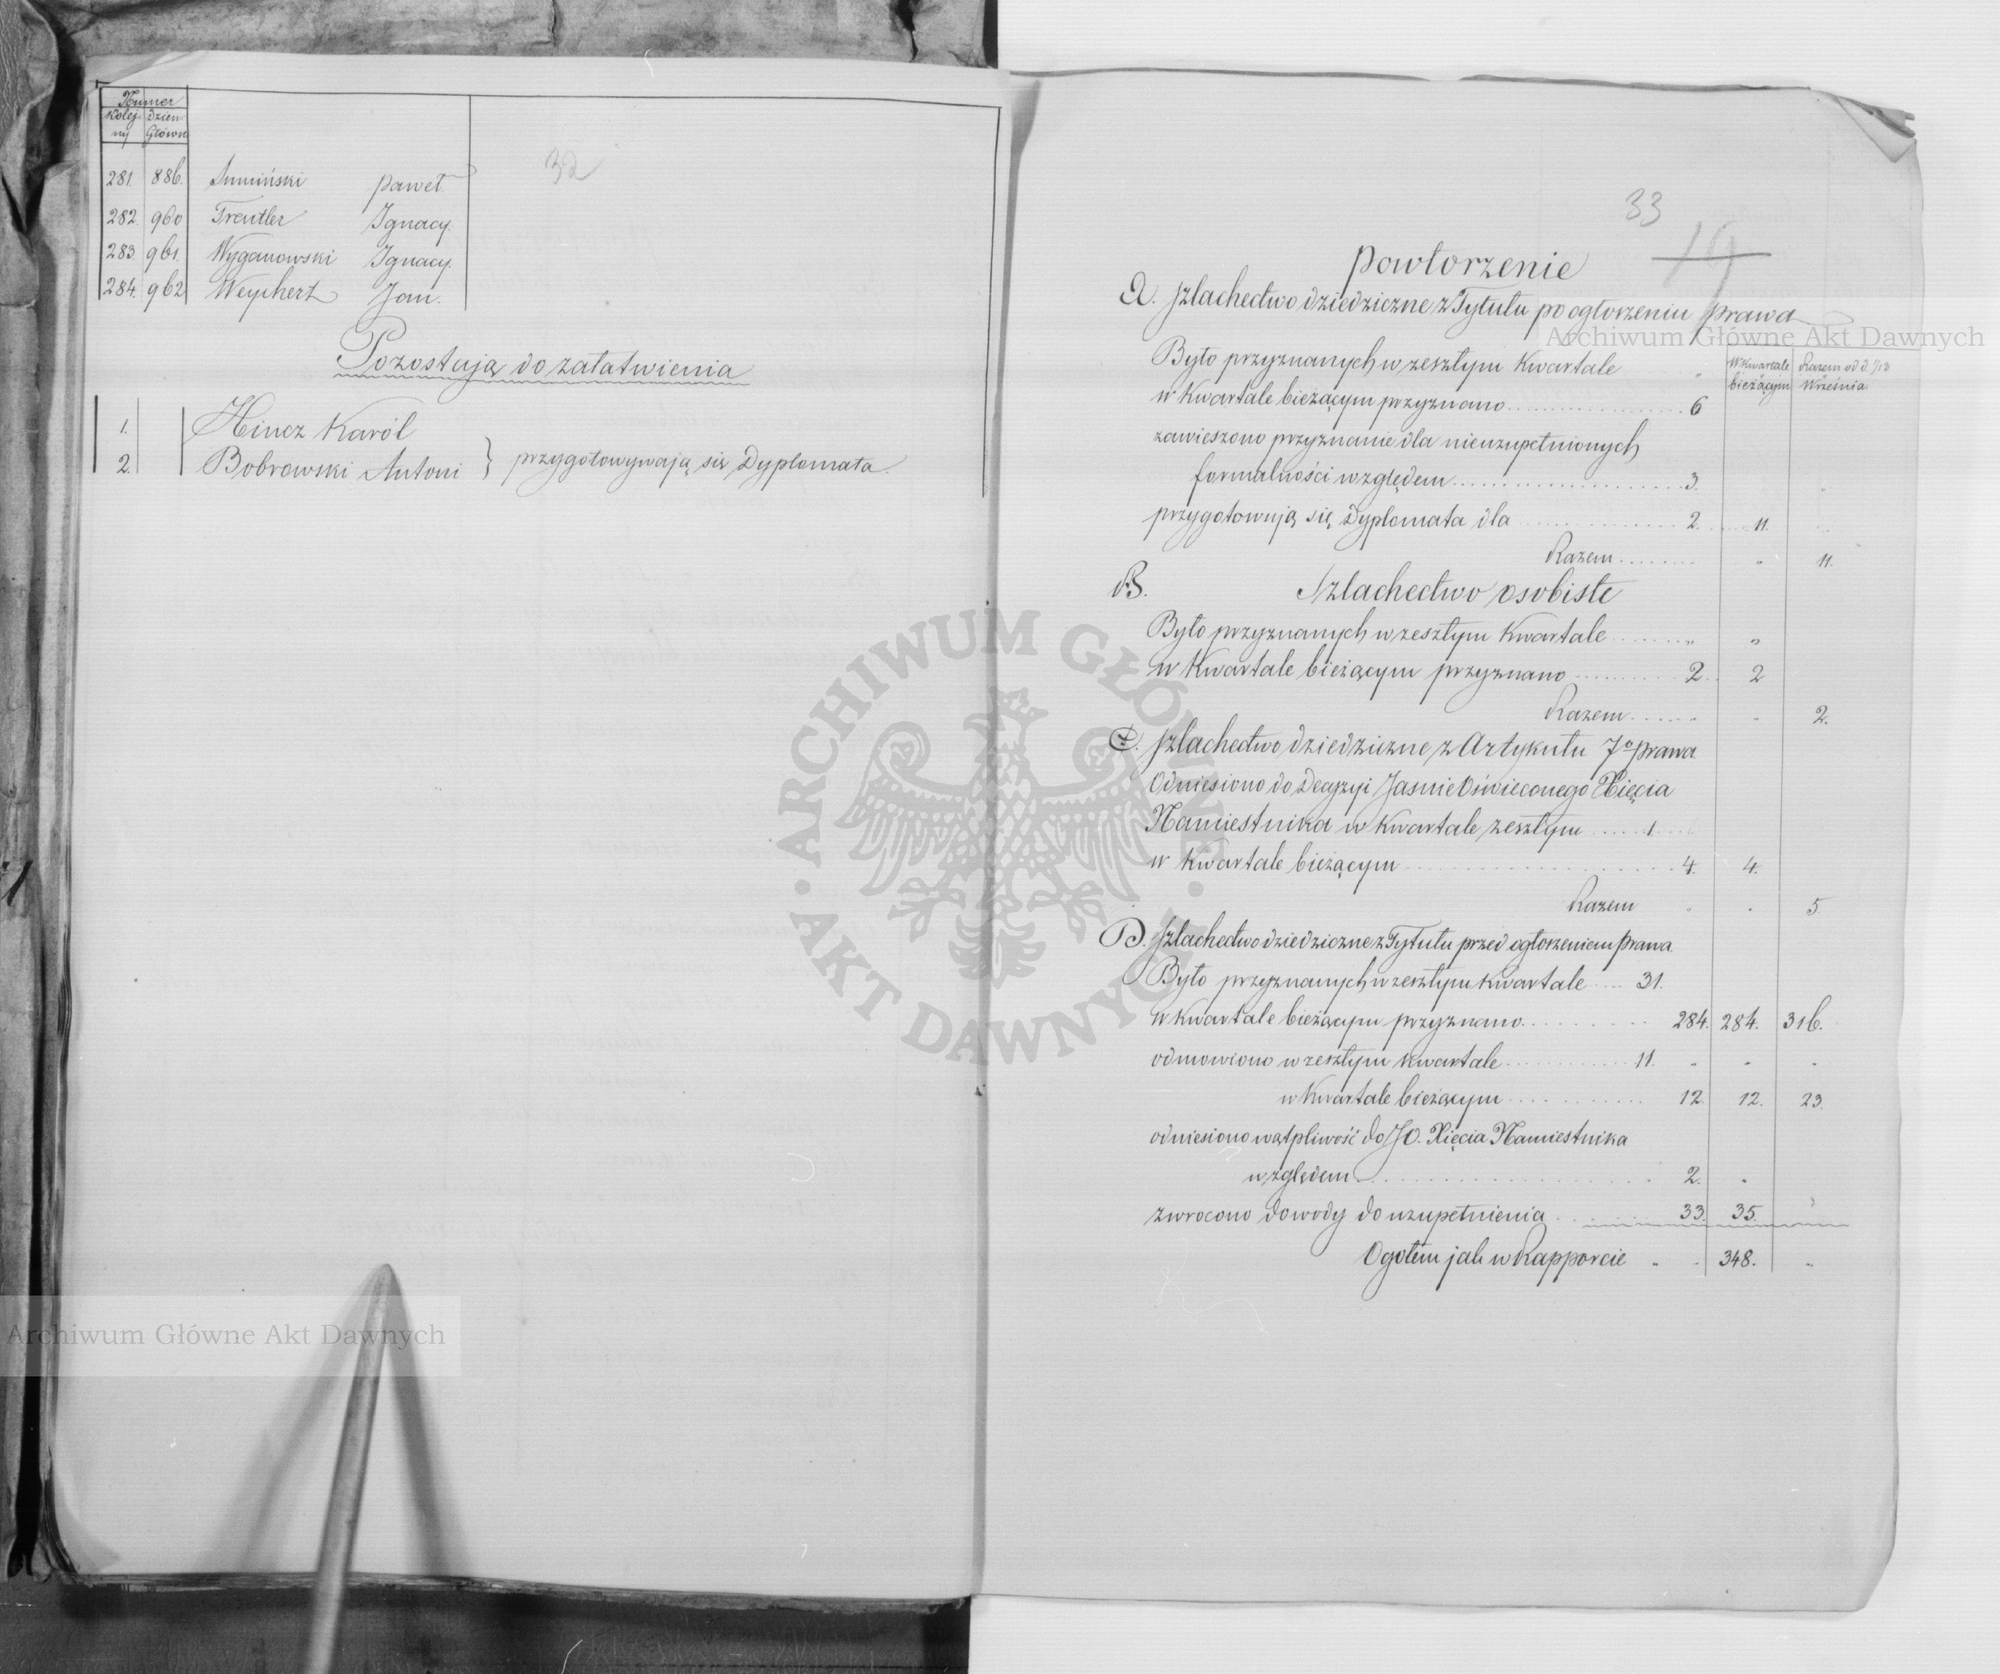 Numer
Kolejny Dzien Główn
32
281. 886. Sumiński Paweł
282. 960 Treutler Ignacy.
283. 961. Wyganowski Ignacy.
284. 962 Weychert Jan.
Pozostują do załatwienia
1. Hincz Karól
2. Bobrowski Antoni } przygotowywają się Dyplomata
33
19
Powtorzenie
A. Szlachectwo dziedziczne z Tytułu po ogłoszeniu prawa
W Kwartale bieżącym Razem od d 7/13 Września
Było przyznanych w zeszłym Kwartale "
w Kwartale bieżącym przyznano 6
zawieszono przyznanie dla nieuzupełnionych
formalności względem 3.
przygotowują się Dyplomata dla 2. 11.
Razem " 11.
B. Szlachectwo osobiste
Było przyznanych w zeszłym Kwartale " "
w Kwartale bieżącym przyznano 2. 2
Razem " " 2.
C. Szlachectwo dziedziczne z Artykułu 7o prawa
Odniesiono do Decyzyi Jasnie Oświeconego Xięcia
Namiestnika w Kwartale zeszłym 1
w Kwartale bieżącym 4. 4.
Razem " " 5
D. Szlachectwo dziedziczne z Tytułu przed ogłoszeniem prawa.
Było przyznanych w zeszłym Kwartale 31.
w Kwartale bieżącym przyznano 284. 284. 316.
odmowiono w zeszłym kwartale 11. " " "
w Kwartale bieżącym 12. 12. 23.
odniesiono wątpliwość do JO. Xięcia Namiestnika
względem 2. "
zwrocono dowody do uzupełnienia 33. 35. "
Ogołem jak w Rapporcie " " 348. "
Archiwum Główne Akt Dawnych
ARCHIWUM GŁÓWNE AKT DAWNYCH
Archiwum Główne Akt Dawnych